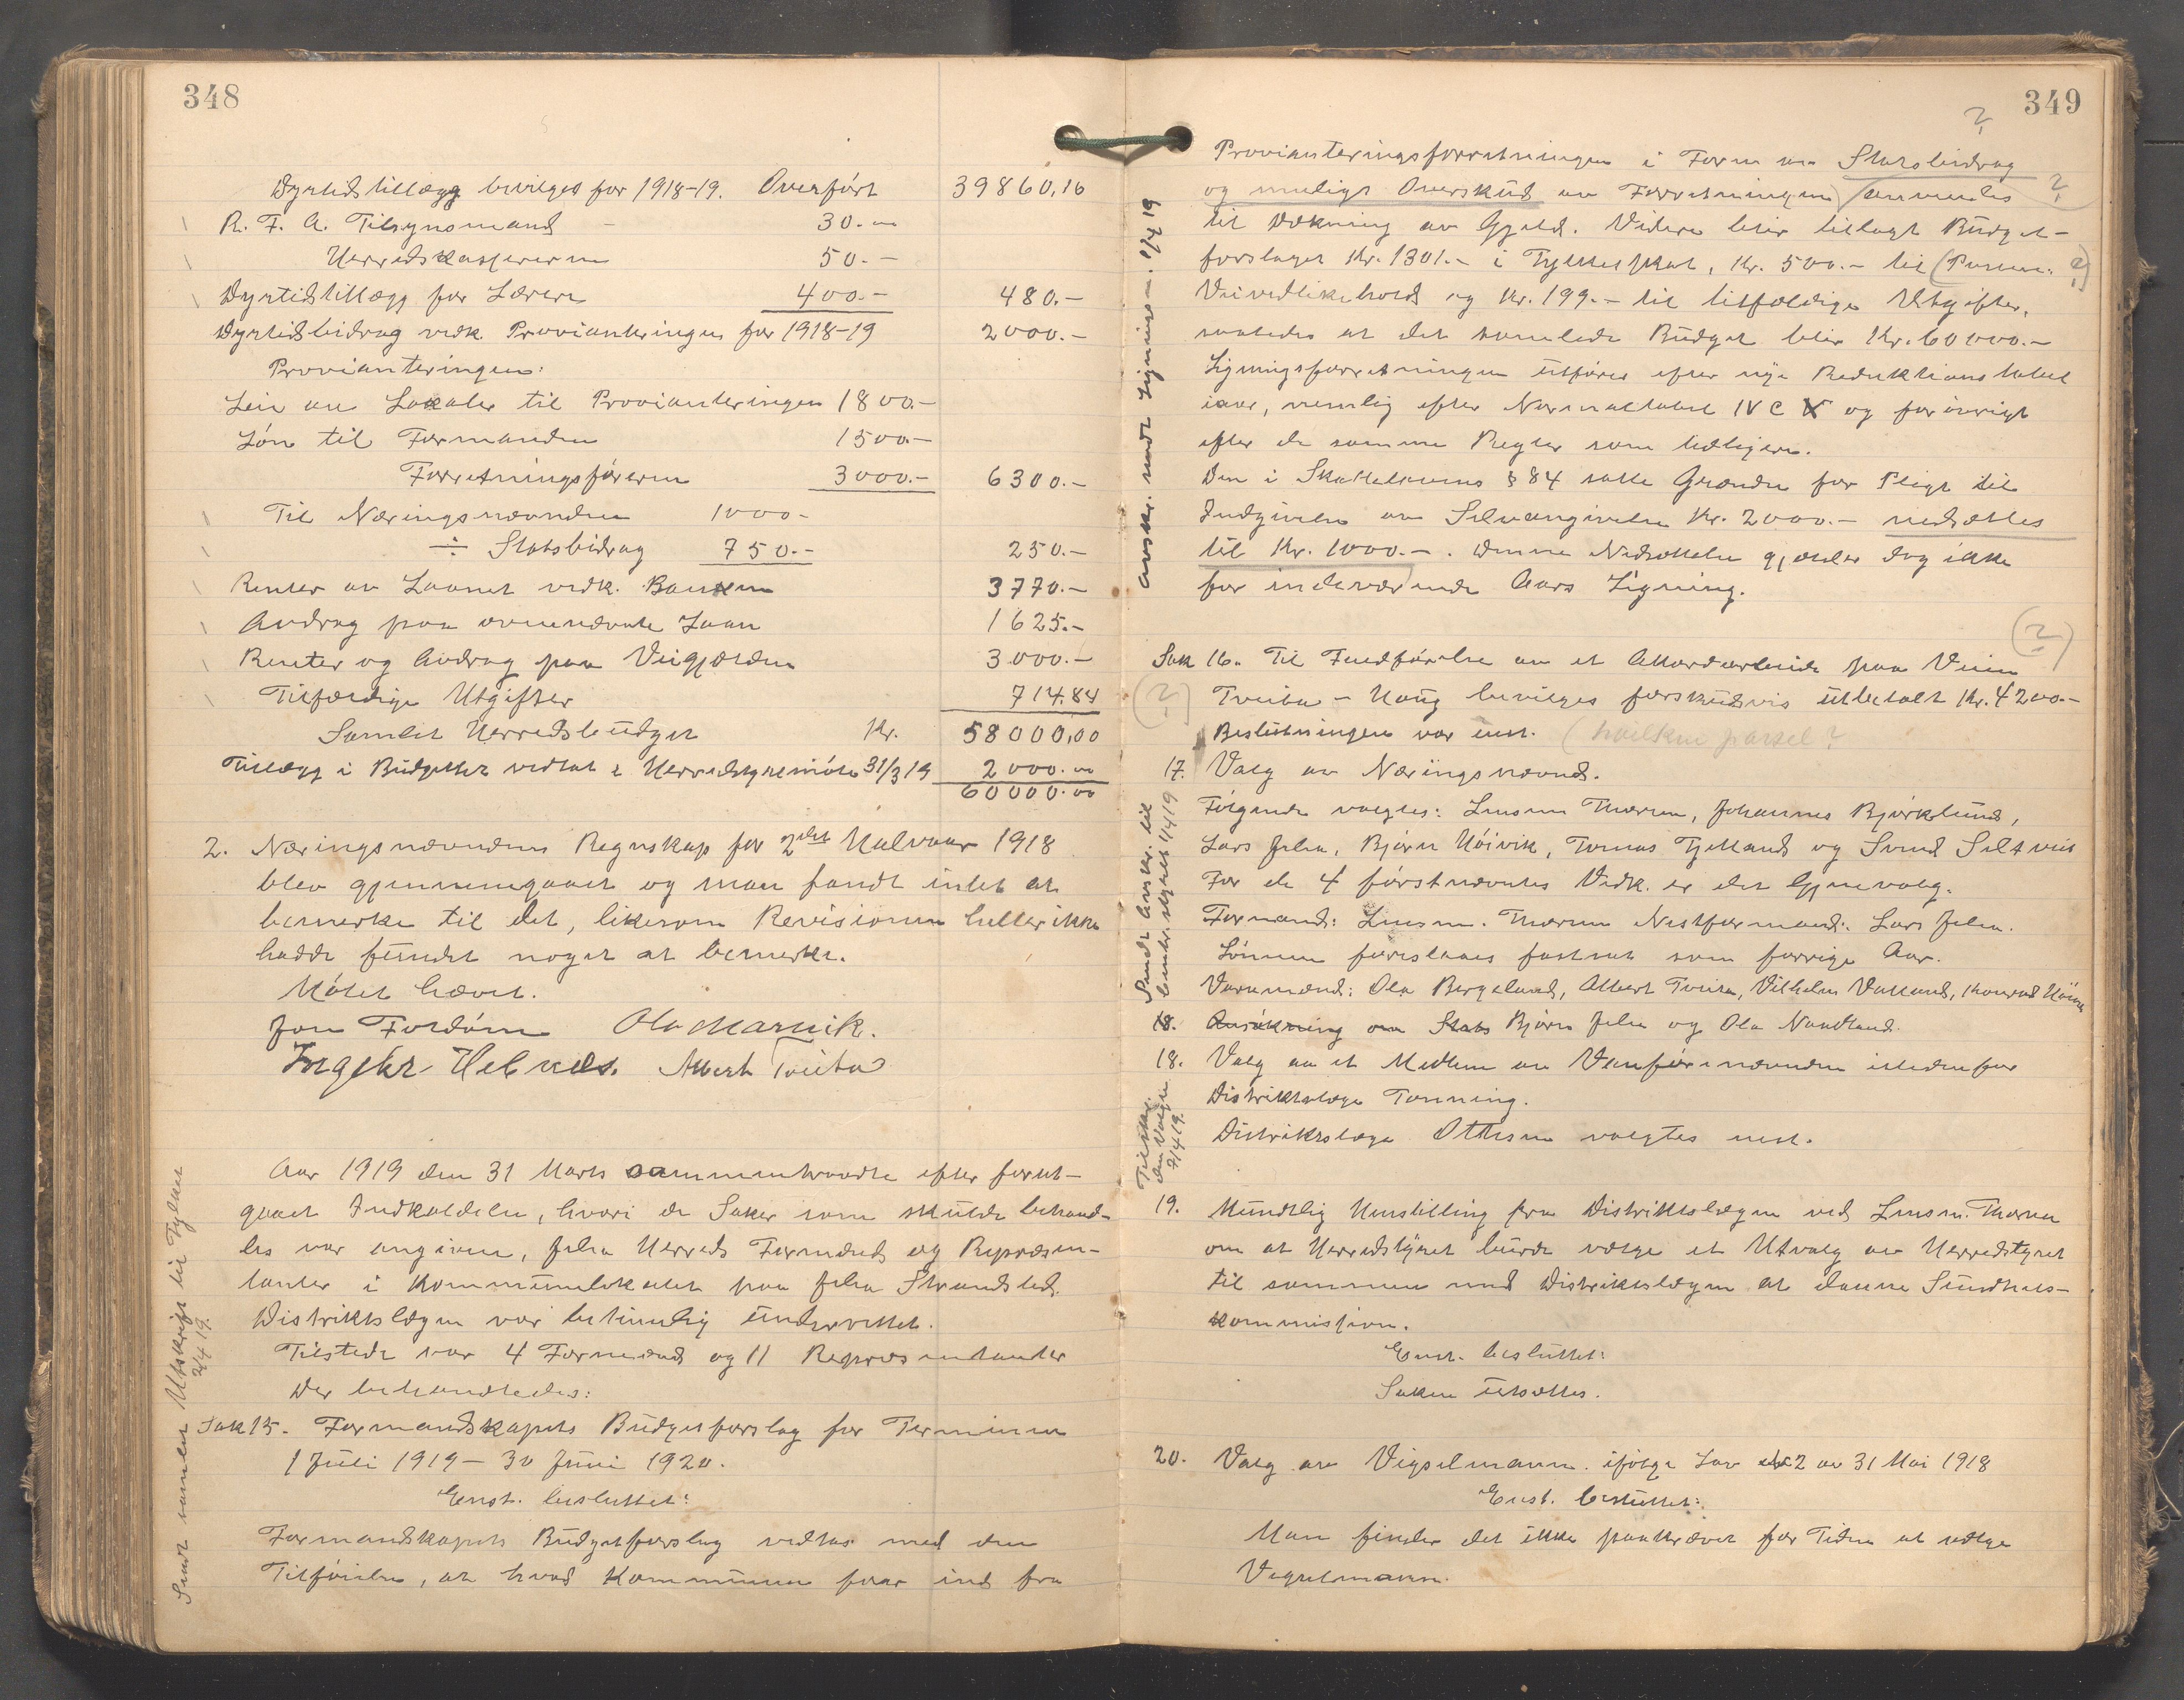 348
Dyrtidstillægg bevilges for 1918-19. Overført 39860,16
R. F. A. Tilsynsmand - 30.-
Herredskassereren 50.-
Dyrtidstillægg for Lærere 400.- 480.-
Dyrtidsbidrag vedk. Provianteringen for 1918-19 2000.-
Provianteringen:
Leie av Lokaler til Provianteringen 1800.-
Løn til Formanden 1500.-
Forretningsføreren 3000.- 6300.-
Til Næringsnævnden 1000.-
÷ Statsbidrag 750.- 250.-
Renter av Laanet vedk. Banken 3770.-
Avdrag paa ovennævnte Laan 1625.-
Renter og Avdrag paa Veigjælden 3000.-
Tilfældige Utgifter 714.84
Samlet Herredsbudget Kr. 58000,00
Tillægg i Budgettet vedtat i Herredstyremøte 31/3 19 2000.00
60000.00
2. Næringsnævndens Regnskap for 2det Halvaar 1918
blev gjennemgaaet og man fandt intet at
bemerke til det, likesom Revisionen heller ikke
hadde fundet noget at bemerke.
Møtet hævet.
Jon Fordøm Ola Marvik.
Ingebr. Helvæs. Albert Tveita
Aar 1919 den 31 Marts sammentraadte efter forut-
gaaet Indkaldelse, hvori de Saker som skulde behand-
les var angiven, Jelsa Herreds Formænd og Repræsen-
tanter i Kommunelokalet paa Jelsa Strandsted.
Distriktslægen var betimelig underrettet.
Tilstede var 4 Formænd og 11 Repræsentanter
Der behandledes:
Sak 15. Formandskapets Budgetforslag for Terminen
1 Juli 1919 - 30 Juni 1920.
Enst. besluttet:
Formandskapets Budgetforslag vedtas med den
Tilføielse, at hvad Kommunen faar ind fra
Sendt samlet Utskrift til Fylket
2/4 19.
349
Provianteringsforretningen i Form av Statsbidrag
og muligt Overskud av Forretningen anvendes
til Dækning av Gjeld. Videre blir tillagt Budget-
forslaget Kr. 1301.- i Fylkesskat, Kr. 500.- til
Veivedlikehold og Kr. 199.- til tilfældige Utgifter,
saaledes at det samlede Budget blir Kr. 60000.-
Ligningsforretningen utføres efter nye Reduktionstabel
iaar, nemlig efter Normaltabel IV C og forøvrigt
efter de samme Regler som tidligere.
Den i Skatteloven § 84 satte Grændse for Pligt til
Indgivelse av Selvangivelse Kr. 2000.- nedsættes
til Kr. 1000.-. Denne Nedsættelse gjælder dog ikke
for indeværende Aars Ligning.
Sak 16. Til Fuldførelse av et Akordarbeide paa Veien
Tveita - Haug bevilges forskudsvis utbetalt Kr. 4200.-
Beslutningen var enst. (hvilken parsel?
17. Valg av Næringsnævnd.
Følgende valgtes: Lensm. Thorsen, Johannes Bjørklund,
Lars Jelsa, Bjørn Høivik, Tomas Tjelland og Svend Seltveit
For de 4 førstnævntes Vedk. er det Gjenvalg.
Formand: Lensm. Thorsen Nestformand: Lars Jelsa.
Lønnen foreslaaes fastsat som forrige Aar.
Varamænd: Ola Bergeland, Albert Tveita, Vilhelm Vatland,
18. Ansøkning om Stats Bjørn Jelsa og Ola Nordland.
18. Valg av et Medlem av Vanførenævnden istedenfor
Distriktslæge Tonning.
Distriktslæge Ottesen valgtes enst.
19. Mundtlig Henstilling fra Distriktslægen ved Lensm. Thorsen
om at Herredstyret burde vælge et Utvalg av Herredstyret
til sammen med Distriktslægen at danne Sundhets-
kommission.
Enst. besluttet:
Saken utsættes.
20. Valg av Vigselmann ifølge Lov nr 2 av 31 Mai 1918
Enst. besluttet:
Man finder det ikke paakrævet for Tiden at vælge
Vigselmann.